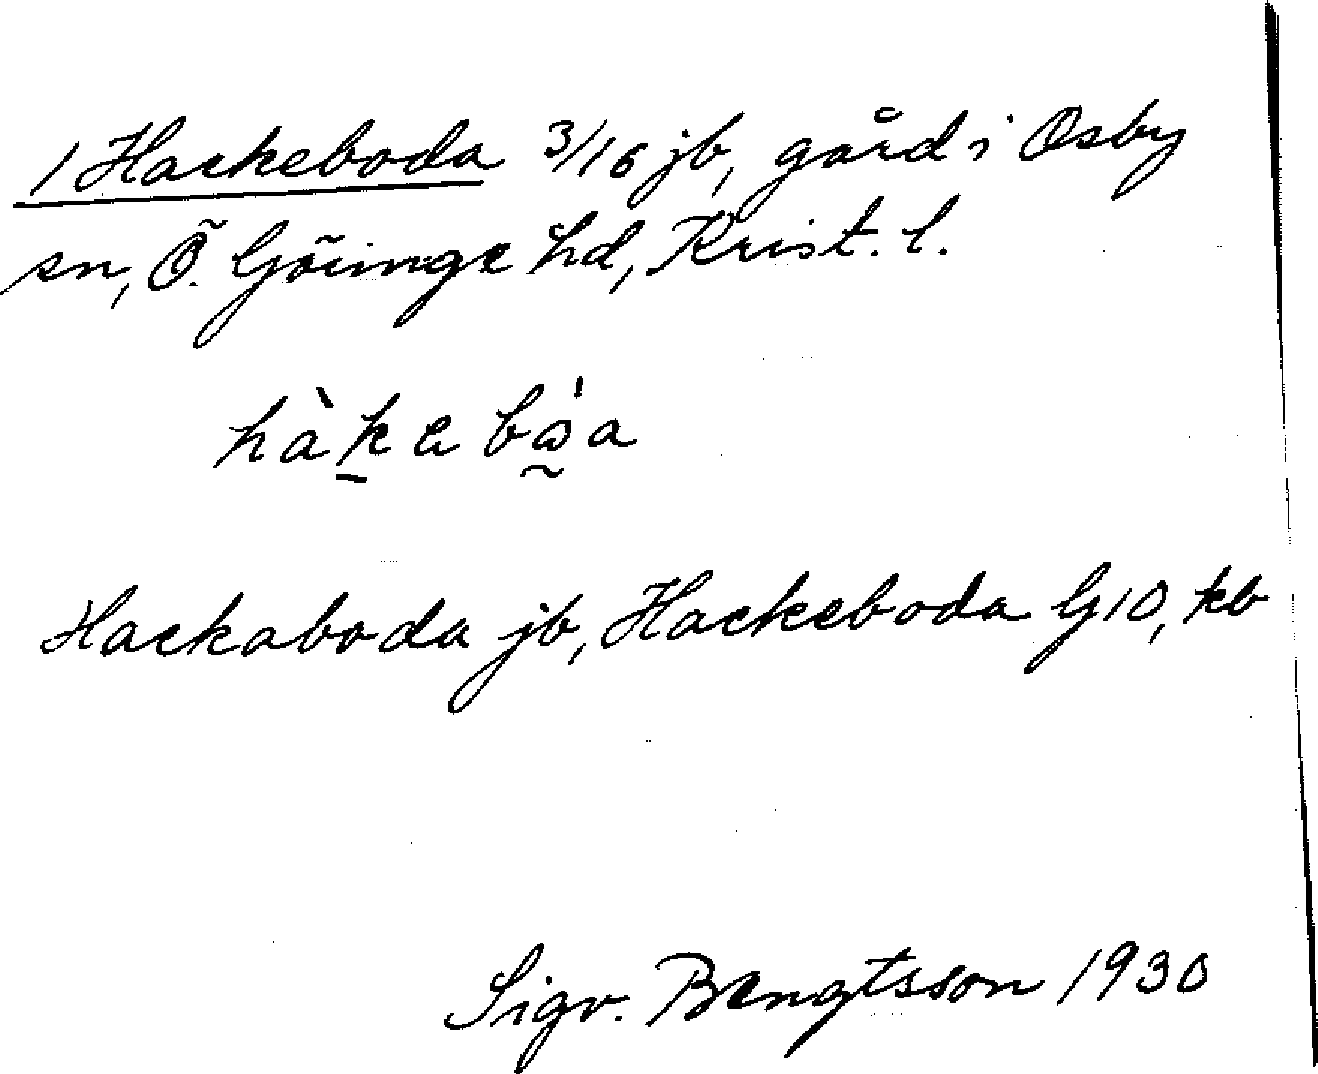 1 Hackeboda 3/16 jb, gård i Osby
sn, Ö. Göinge hd, Krist. l.
hàk̠ebó̰a
Hackaboda jb, Hackeboda G10, kb
Sigv. Bengtsson 1930